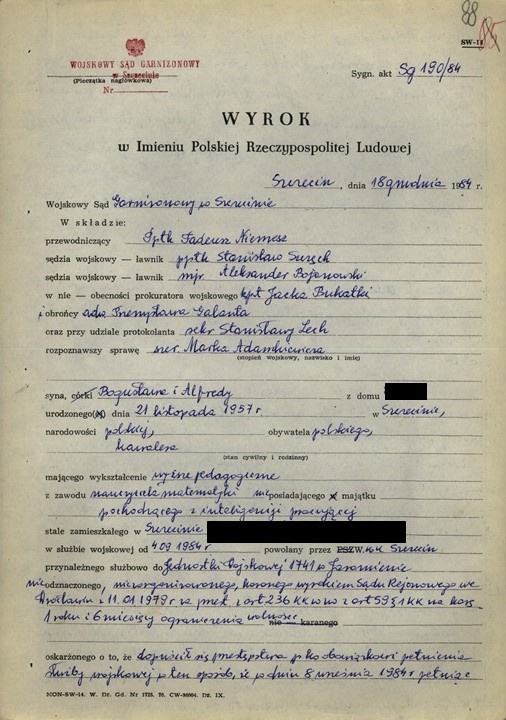 88
85
SW-14
WOJSKOWY SĄD GARNIZONOWY
w Szczecinie
(Pieczątka nagłówkowa)
Nr
Sygn. akt Sg 190/84
WYROK
w Imieniu Polskiej Rzeczypospolitej Ludowej
Szczecin, dnia 18 grudnia 1984 r.
Wojskowy Sąd Garnizonowy w Szczecinie
W składzie:
przewodniczący ppłk Tadeusz Niemesz
sędzia wojskowy — ławnik ppłk Stanisław
sędzia wojskowy — ławnik mjr Aleksander Bojanowski
w nie — obecności prokuratora wojskowego kpt Jacka Bukatki
i obrońcy adw Przemysława Galanta
oraz przy udziale protokolanta sekr Stanisławy Lech
rozpoznawszy sprawę szer Marka Adamkiewicza
(stopień wojskowy, nazwisko i imię)
syna, córki Bogusława i Alfredy z domu
urodzonego(x) dnia 21 listopada 1957 r. w Szczecinie,
narodowości polskiej, obywatela polskiego,
kawalera
(stan cywilny i rodzinny)
mającego wykształcenie wyższe pedagogiczne
z zawodu nauczyciela matematyki nieposiadającego x majątku
pochodzącego z inteligencji pracującej
stale zamieszkałego w Szczecinie
w służbie wojskowej od 4 09 1984 r powołany przez PSZW. Szczecin
przynależnego służbowo do Jednostki Wojskowej 1741 w
nie odznaczonego, niezorganizowanego, karanego wyrokiem Sądu Rejonowego we
Wrocławiu z 11.01.1979 r za przest z art 236 kk w zw z art 59§1 KK na karę
1 roku i 6 miesięcy ograniczenia wolności nie karanego
oskarżonego o to, że dopuścił się przestępstwa p-ko obowiązkowi pełnienia
służby wojskowej w ten sposób, że w dniu 8 września 1984 r pełniąc
MON-SW-14. W. Dr. Gd. Nr 1725. 76. CW-86964. Dz. IX.